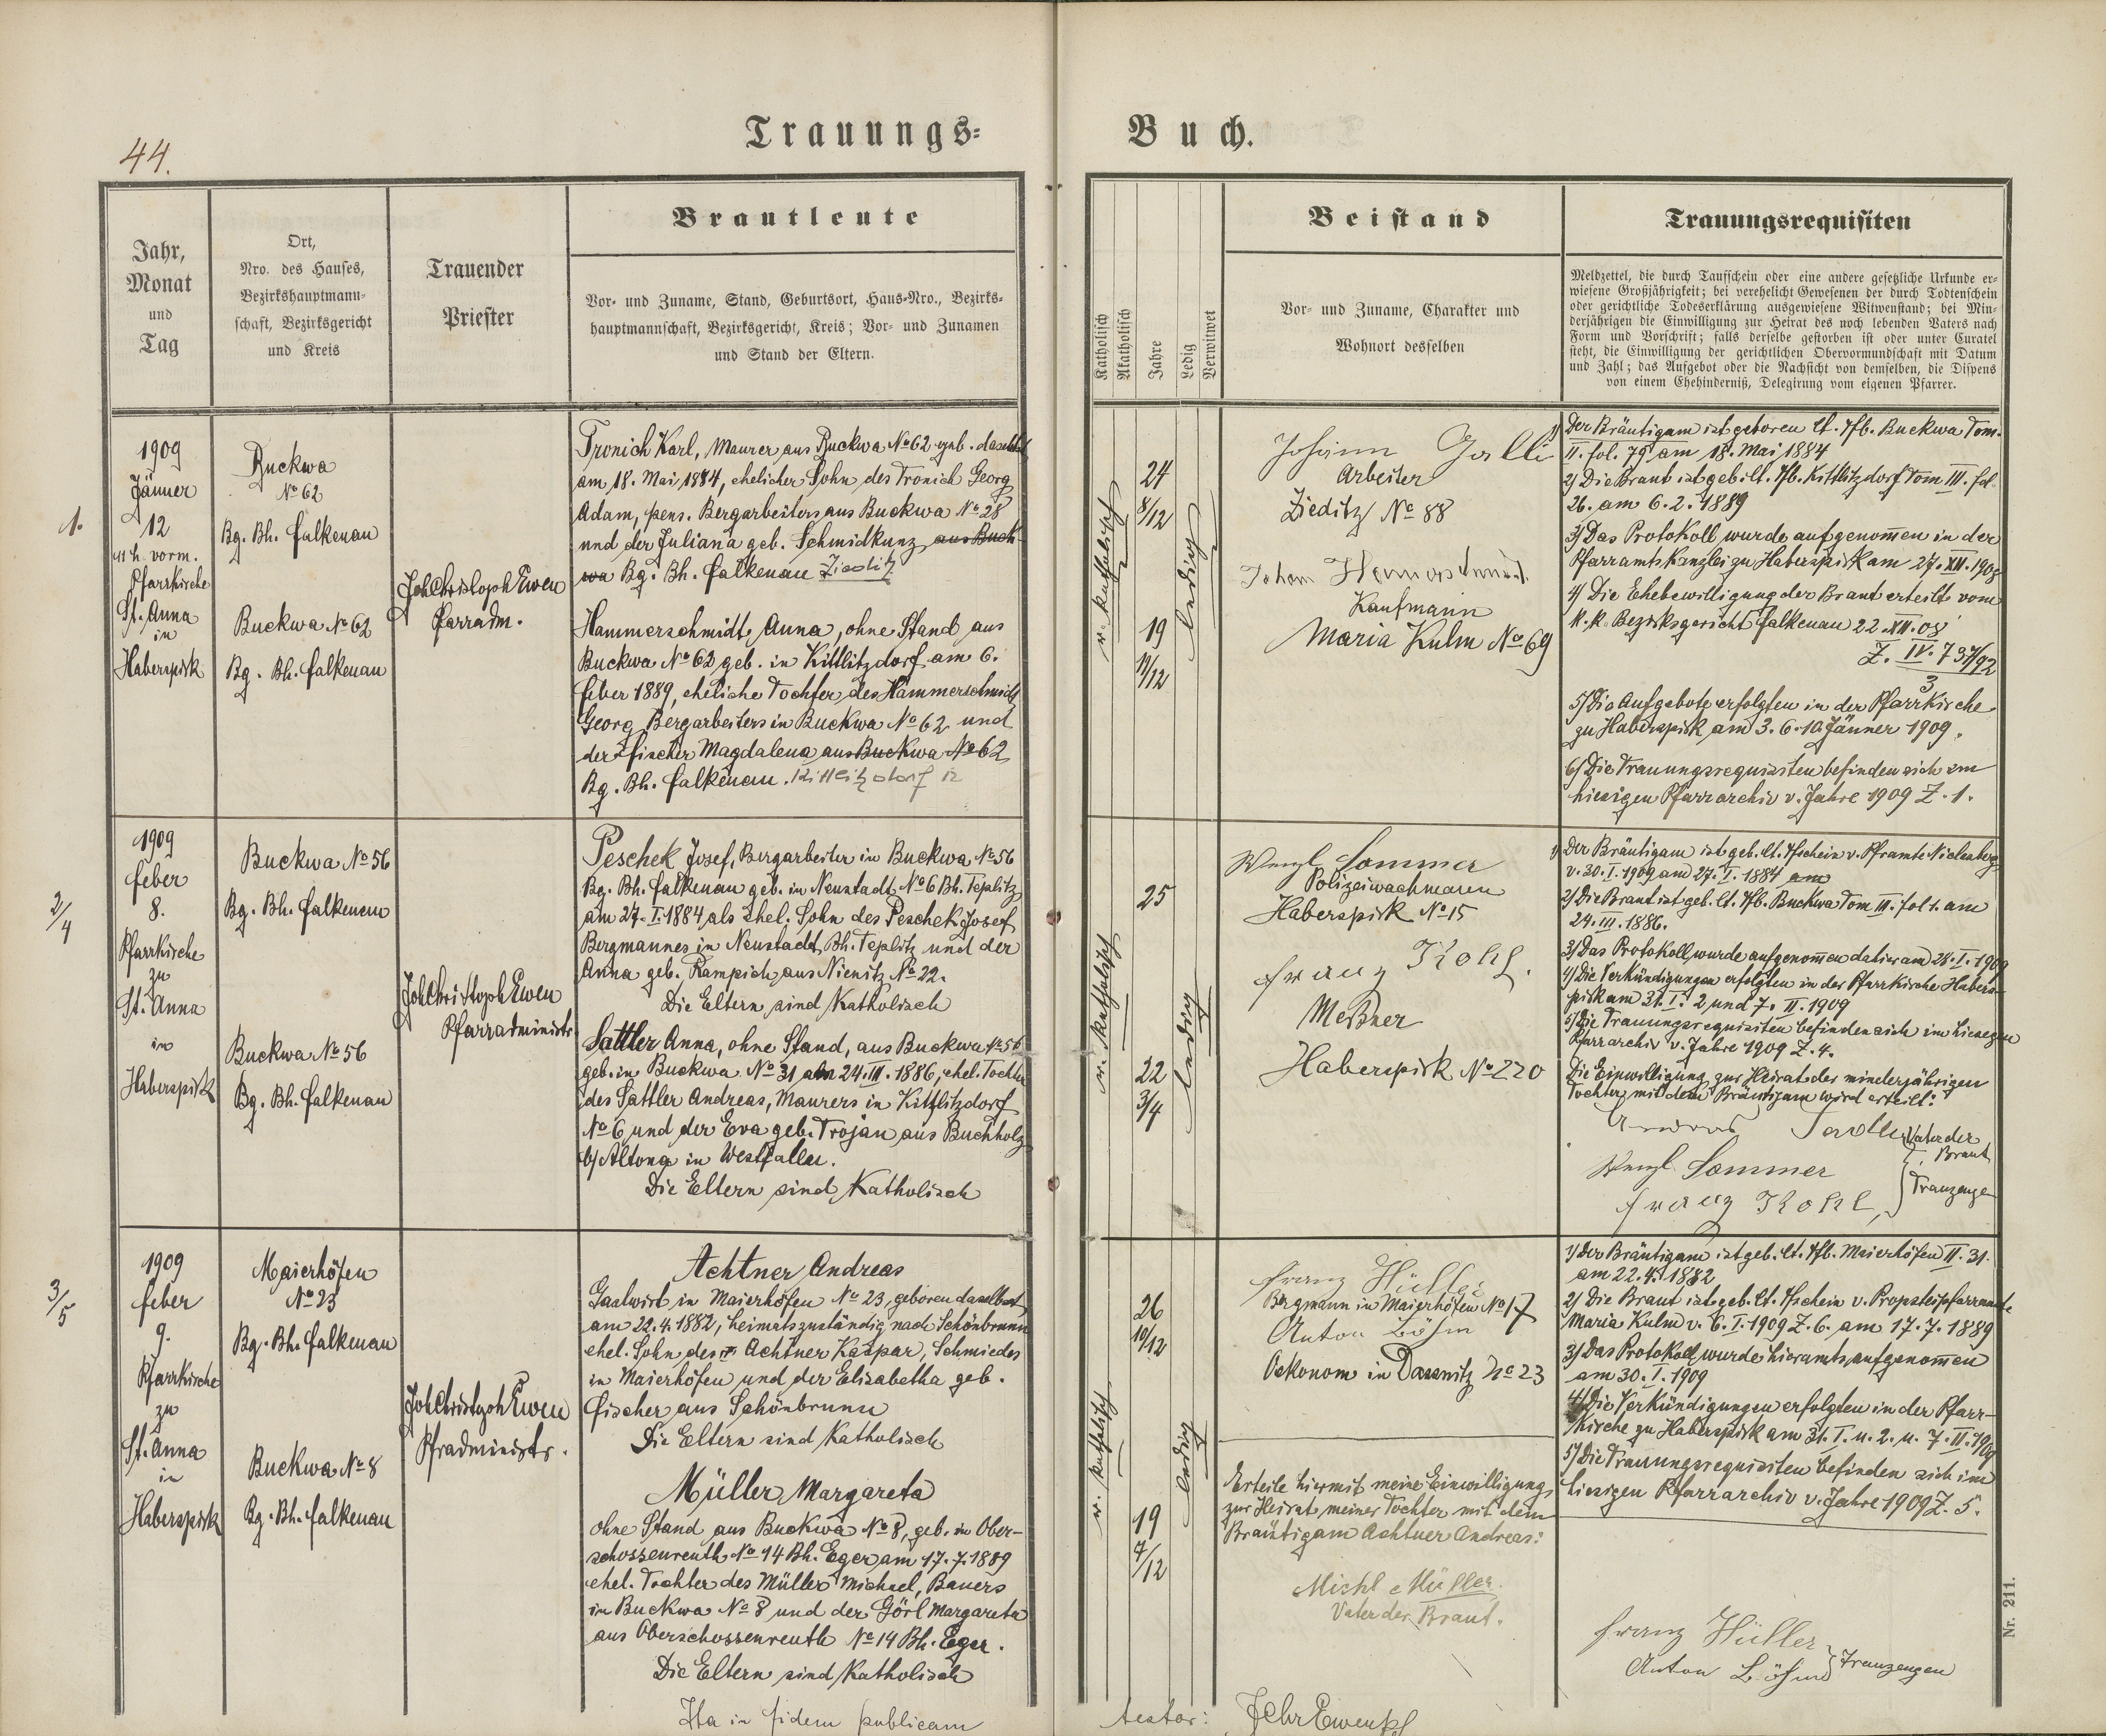 44.
Trauungs=
Buch.
Jahr,
Monat
und
Tag
Ort,
Nro. des Hauses,
Bezirkshauptmann-
schaft, Bezirksgericht
und Kreis
Trauender
Priester
Brautleute
Vor- und Zuname, Stand, Geburtsort, Haus-Nro., Bezirks-
hauptmannschaft, Bezirksgericht, Kreis; Vor- und Zunamen
und Stand der Eltern.
Katholisch
Akatholisch
Jahre
Ledig
Verwitwet
Beistand
Vor- und Zuname, Charakter und
Wohnort desselben
Trauungsrequisiten
Meldzettel, die durch Taufschein oder eine andere gesetzliche Urkunde er-
wiesene Großjährigkeit; bei verehelicht Gewesenen der durch Todtenschein
oder gerichtliche Todeserklärung ausgewiesene Witwenstand; bei Min-
derjährigen die Einwilligung zur Heirat des noch lebenden Vaters nach
Form und Vorschrift; falls derselbe gestorben ist oder unter Curatel
steht, die Einwilligung der gerichtlichen Obervormundschaft mit Datum
und Zahl; das Aufgebot oder die Nachsicht von demselben, die Dispens
von einem Ehehinderniß, Delegirung vom eigenen Pfarrer.
1.
1909
Jänner
12
11 h vorm.
Pfarrkirche
St. Anna
in
Haberspirk
Buckwa
No 62
Bg. Bh. Falkenau
Buckwa No 62
Bg. Bh. Falkenau
Joh Christoph Ewen
Farradm.
Tronich Karl, Maurer aus Buckwa No 62 geb. daselbst
am 18. Mai 1884, ehelicher Sohn des Tronich Georg
Adam, pens. Bergarbeiters aus Buckwa No 28
und der Juliana geb. Schmidkunz aus Buck-
wa Bg. Bh. Falkenau Zieditz
Hammerschmidt Anna, ohne Stand aus
Buckwa No 62 geb. in Kittlitzdorf am 6.
Feber 1889, eheliche Tochter des Hammerschmidt
Georg, Bergarbeiters in Buckwa No 62 und
der Fischer Magdalena aus Buckwa No 62
Bg. Bh. Falkenau. Kittlitzdorf 12
r. katholisch
24
8/12
19
11/12
ledig
Johann Galli
Arbeiter
Zieditz No 88
Johann
Kaufmann
Maria Kulm No 69
1) Der Bräutigam ist geboren lt. Tfb. Buckwa Tom.
II. fol. 79 am 18. Mai 1884
2) Die Braut ist geb. lt. Tfb. Kittlitzdorf Tom III. fol.
26. am 6. 2. 1889
3) Das Protokoll wurde aufgenom̄en in der
Pfarramtskanzlei zu Haberspirk am 27. XII. 1908
4) Die Ehebewilligung der Braut erteilt vom
k. k. Bezirksgericht Falkenau 22. XII. 08
Z. IV. 737/92
3
5) Die Aufgebote erfolgten in der Pfarrkirche
zu Haberspirk am 3. 6. 10 Jänner 1909.
6) Die Trauungsrequisiten befinden sich im
hiesigen Pfarrarchiv v. Jahre 1909 Z. 1.
2/4
1909
Feber
8.
Pfarrkirche
zu
St. Anna
in
Haberspirk
Buckwa No 56
Bg. Bh. Falkenau
Buckwa No 56
Bg. Bh. Falkenau
Joh Christoph Ewen
Pfarradministr.
Peschek Josef, Bergarbeiter in Buckwa No 56
Bg. Bh. Falkenau geb. in Neustadt No 6 Bh. Teplitz
am 27. I. 1884 als ehel. Sohn des Peschek Josef
Bergmannes in Neustadt, Bh. Teplitz und der
Anna geb. Rampich aus Nienitz No 22.
Die Eltern sind Katholisch
Sattler Anna, ohne Stand, aus Buckwa No 56
geb. in Buckwa No 31 am 24. III. 1886, ehel. Tochter
des Sattler Andreas, Maurers in Kittlitzdorf
No 6 und der Eva geb. Trojan aus Buchholz
b/ Altona in Westfallen.
Die Eltern sind Katholisch
r. katholisch
25
22
3/4
ledig
Wenzl Sommer
Polizeiwachmann
Haberspirk No 15
Franz Kohl.
Meßner
Haberspirk No 220
1) Der Bräutigam ist geb. lt. Tfschein v. Pframte Niclasberg
v. 30. I. 1909 am 27. I. 1884 am
2) Die Braut ist geb. lt. Tfb. Buckwa Tom III. fol 1. am
24. III. 1886.
3) Das Protokoll wurde aufgenom̄en am 28. I. 1909
4) Die Verkündigungen erfolgten in der Pfarrkirche Habers-
pirk am 31. I. 2 und 7. II. 1909
5) Die Trauungsrequisiten befinden sich im hiesigen
Pfarrarchiv v. Jahre 1909 Z. 4.
Die Einwilligung zur Heirat der minderjährigen
Tochter mit dem Bräutigam wird erteilt:
Andreas Sadler Vater der
Braut
Wenzl Sommer
Franz Kohl, } Trauzeuge
3/5
1909
Feber
9.
Pfarrkirche
zu
St. Anna
in
Haberspirk
Maierhöfen
No 23
Bg. Bh. Falkenau
Buckwa No 8
Bg. Bh. Falkenau
Joh Christoph Ewen
Pfradministr.
Achtner Andreas
Gastwirt in Maierhöfen No 23, geboren daselbst
am 22. 4. 1882, heimatszuständig nach Schönbrunn
ehel. Sohn des Achtner Kaspar, Schmiedes
in Maierhöfen und der Elisabetha geb.
Fischer aus Schönbrunn
Die Eltern sind Katholisch
Müller Margareta
ohne Stand aus Buckwa No 8, geb. in Ober-
schossenreuth No 14 Bh. Eger am 17. 7. 1889
ehel. Tochter des Müller Michael, Bauers
in Buckwa No 8 und der Görl Margareta
aus Oberschossenreuth No 14 Bh. Eger.
Die Eltern sind Katholisch
r. katholisch
26
10/12
19
7/12
ledig
Franz Hüller
Bergmann in Maierhöfen No 17
Anton Böhm
Oekonom in Dassnitz No 23
Erteile hiermit meine Einwilligung
zur Heirat meiner Tochter mit dem
Bräutigam Achtner Andreas:
Michl Müller.
Vater der Braut.
1) Der Bräutigam ist geb. lt. Tfb. Maierhöfen II. 31.
am 22. 4. 1882
2) Die Braut ist geb. lt. Tfschein v. Propsteipfarramte
Maria Kulm v. 6. I. 1909 Z. 6. am 17. 7. 1889
3) Das Protokoll wurde hieramts aufgenom̄en
am 30. I. 1909
4) Die Verkündigungen erfolgten in der Pfarr-
kirche zu Haberspirk am 31. I. u. 2. u. 7. II. 1909
5) Die Trauungsrequisiten befinden sich im
hiesigen Pfarrarchiv v. Jahre 1909 Z. 5.
Franz Hüller
Anton Böhm } Trauzeugen
Nr. 211.
Ita in fidem publicam
testor: